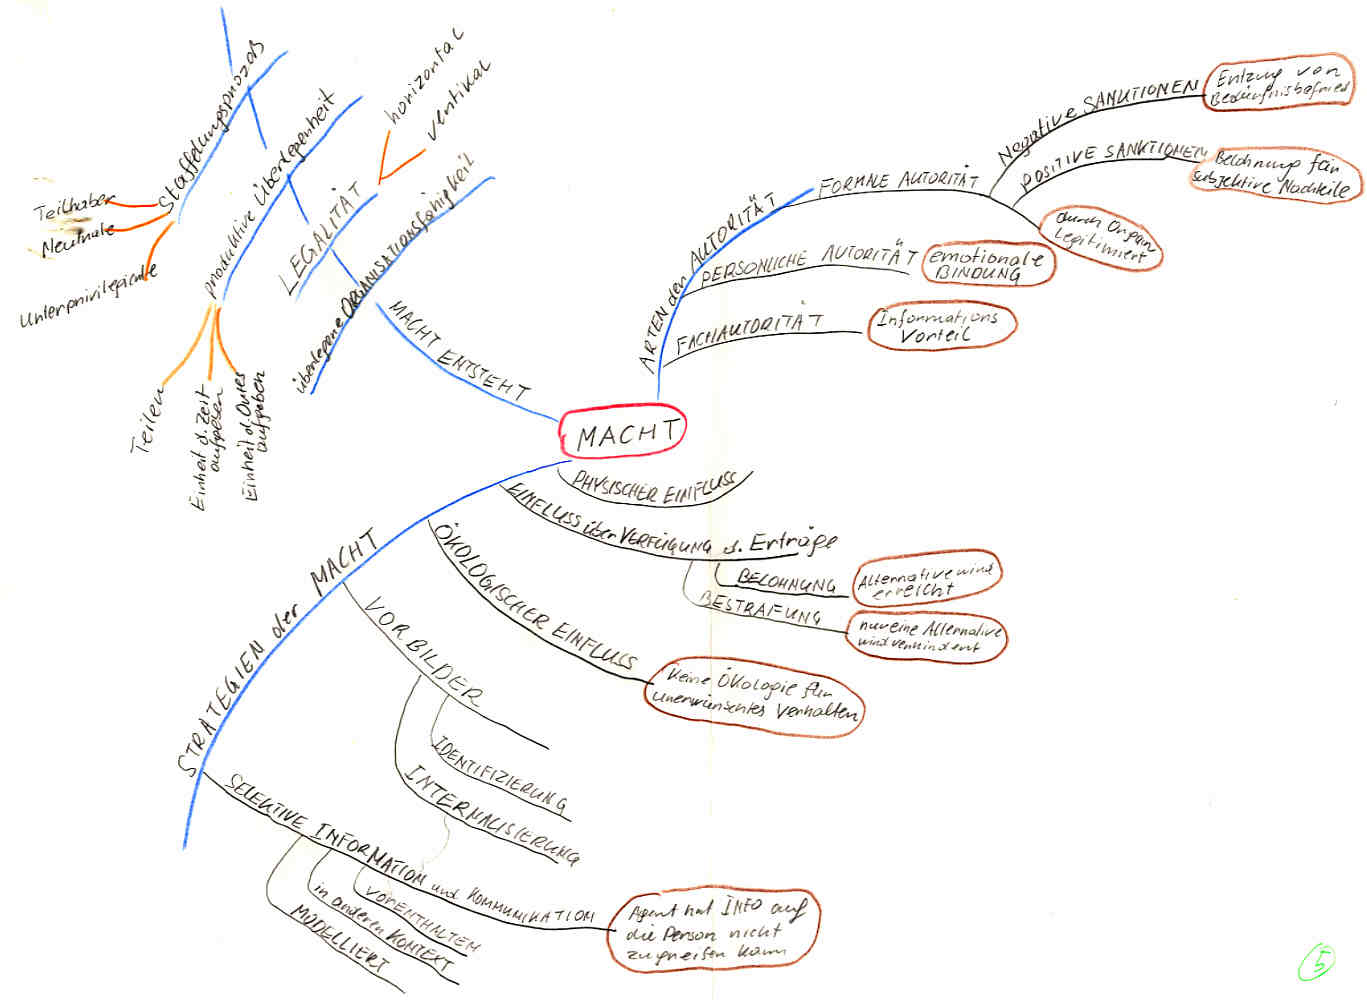 MACHT
ARTEN der AUTORITÄT
FORMALE AUTORITÄT
Negative SANKTIONEN
Entzug von
Bedürfnisbefried
POSITIVE SANKTIONEN
Belohnung für
subjektive Nachteile
durch Organ
Legitimiert
PERSÖNLICHE AUTORITÄT
emotionale
BINDUNG
FACHAUTORITÄT
Informations
Vorteil
MACHT ENTSTEHT
überlegene ORGANISATIONSfähigkeit
LEGALITÄT
horizontal
vertikal
produktive Überlegenheit
Teilen
Einheit d. Zeit
auflösen
Einheit d. Ortes
aufgeben
Staffelungsprozeß
Teilhaber
Neutrale
Unterprivilegierte
STRATEGIEN der MACHT
PHYSISCHER EINFLUSS
EINFLUSS über VERFÜGUNG d. Erträge
BELOHNUNG
Alternative wird
erreicht
BESTRAFUNG
nur eine Alternative
wird verhindert
ÖKOLOGISCHER EINFLUSS
Keine Ökologie für
unerwünschtes Verhalten
VORBILDER
IDENTIFIZIERUNG
INTERNALISIERUNG
SELEKTIVE INFORMATION und KOMMUNIKATION
Agent hat INFO auf
die Person nicht
zugreifen kann
VORENTHALTEN
in anderen KONTEXT
MODELLIERT
5